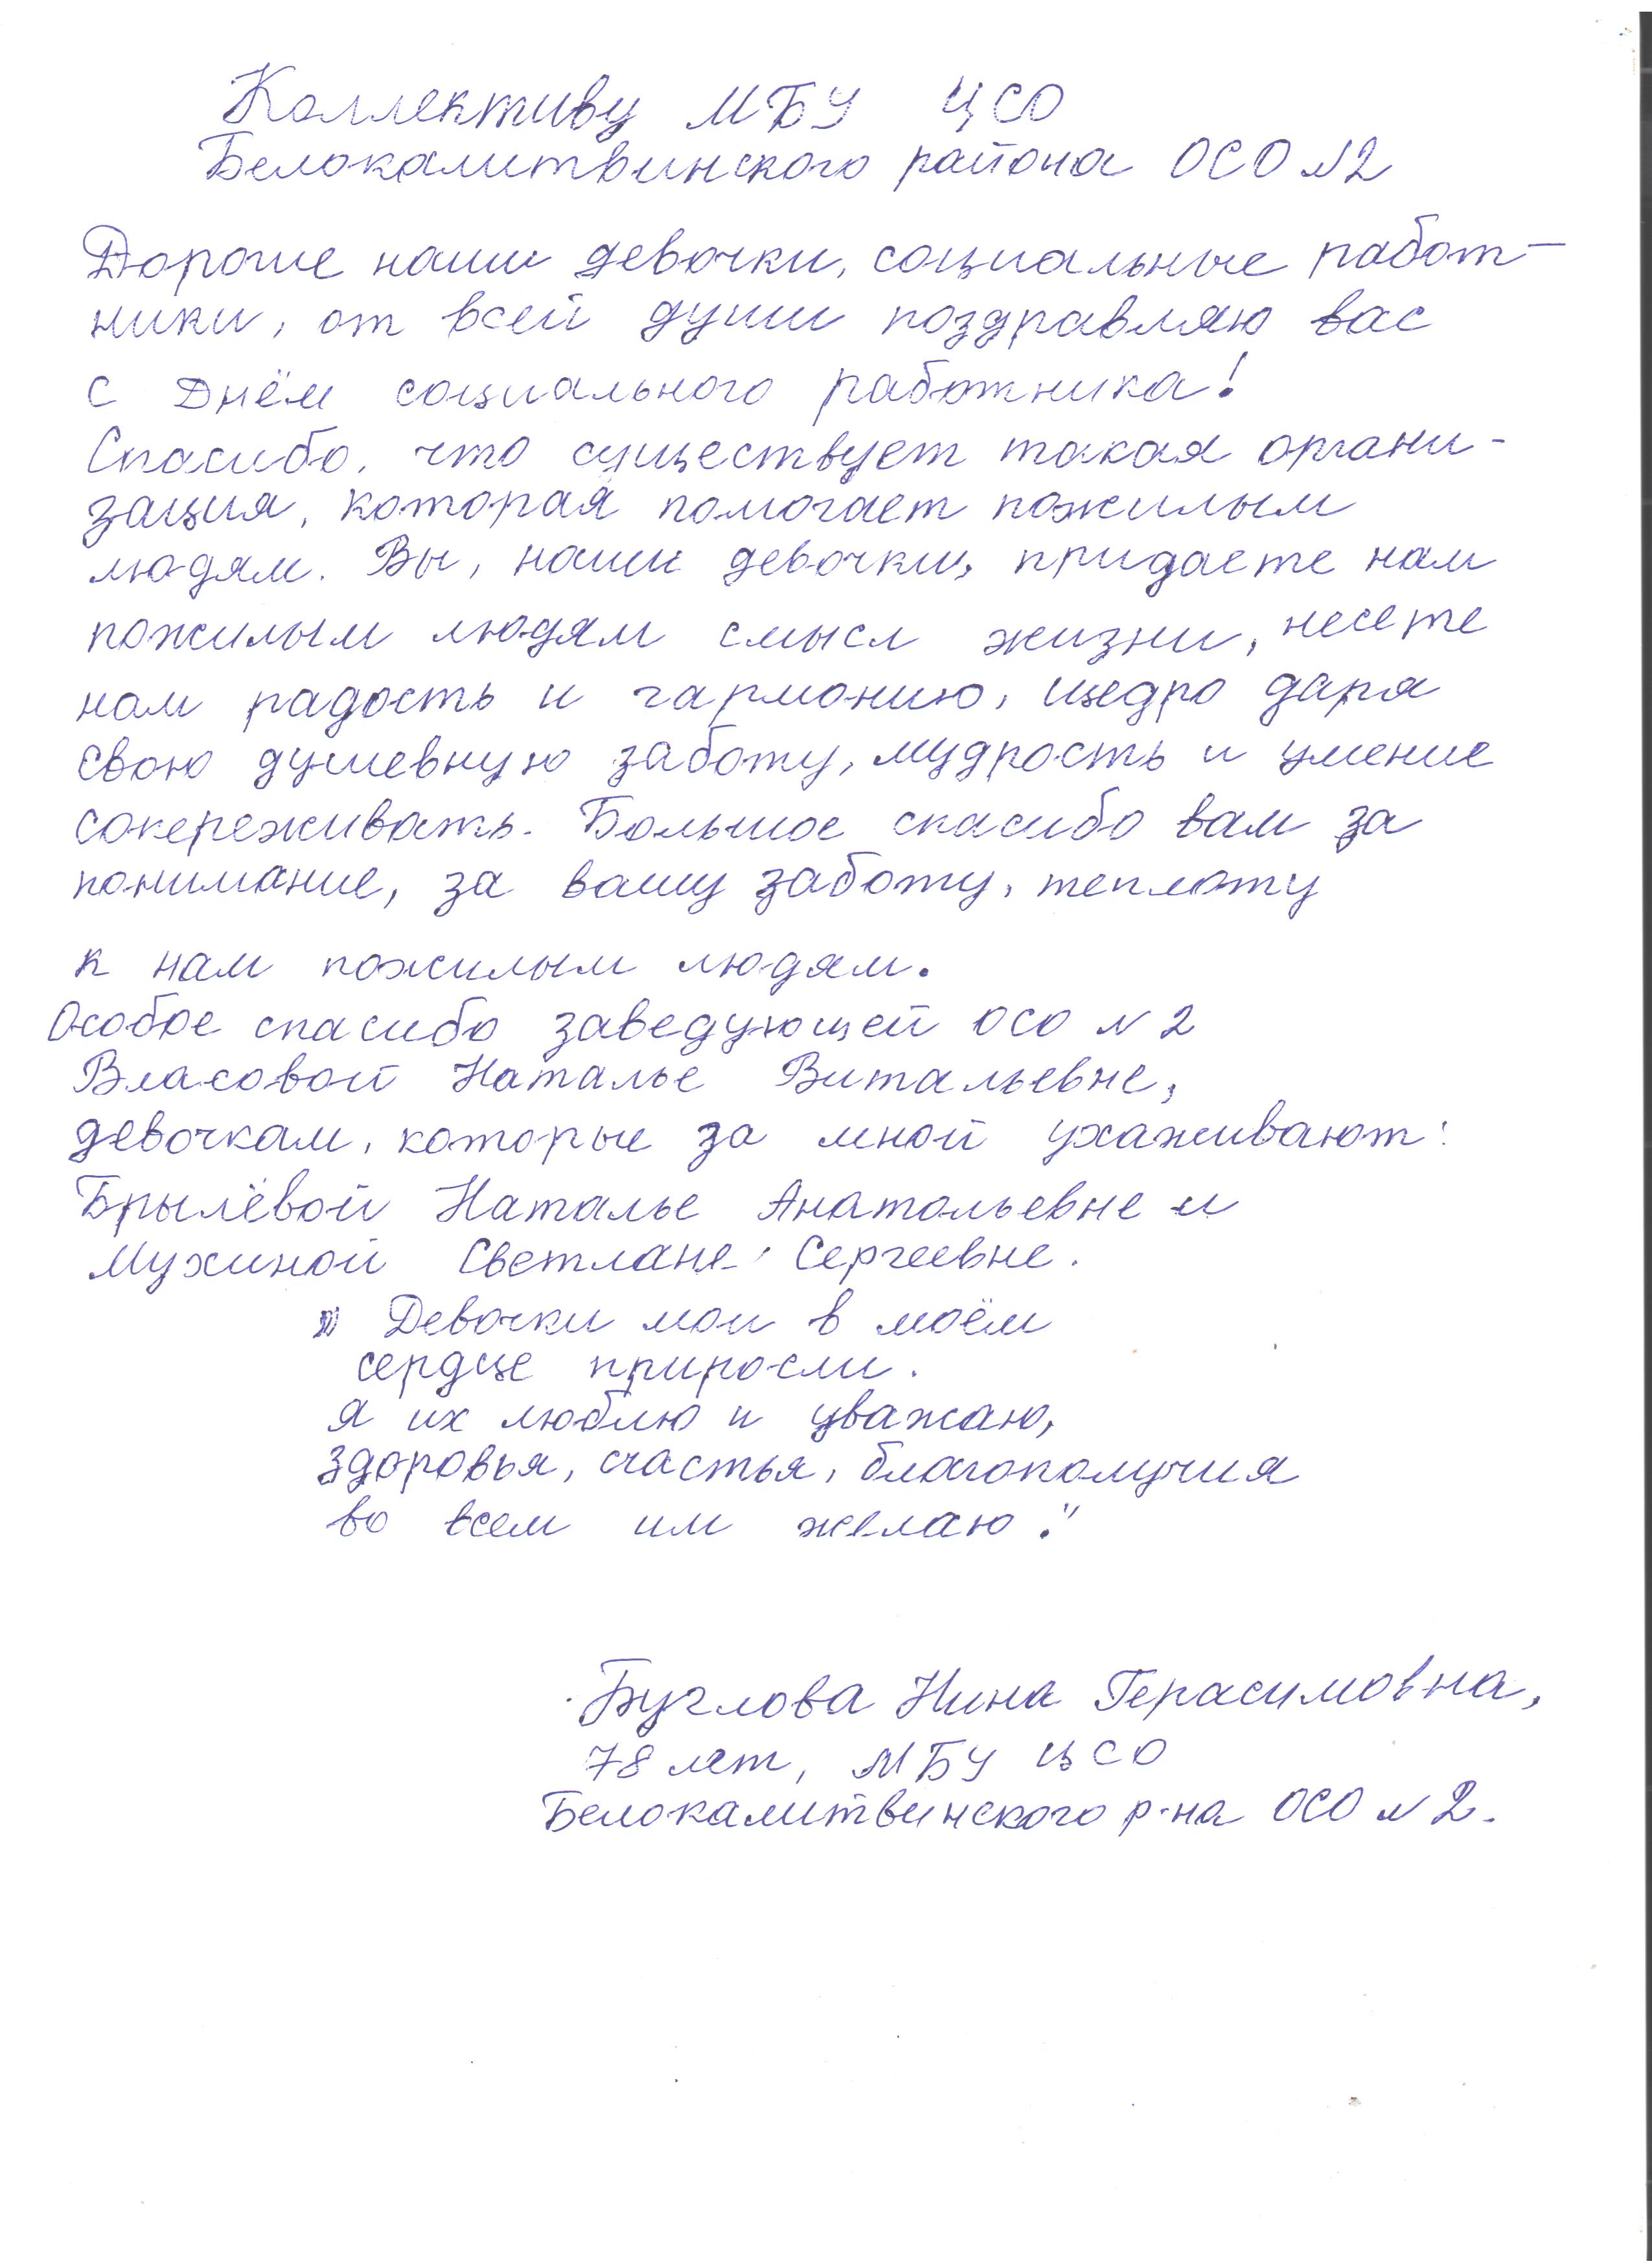 Коллективу МБУ ЦСО
Белокалитвинского района ОСО №2
Дорогие наши девочки, социальные работ-
ники, от всей души поздравляю вас
с Днём социального работника!
Спасибо, что существует такая органи-
зация, которая помогает пожилым
людям. Вы, наши девочки, придаете нам
пожилым людям смысл жизни, несете
нам радость и гармонию, щедро даря
свою душевную заботу, мудрость и умение
сопереживать. Большое спасибо вам за
понимание, за вашу заботу, теплоту
к нам пожилым людям.
Особое спасибо заведующей ОСО №2
Власовой Наталье Витальевне,
девочкам, которые за мной ухаживают:
Брылёвой Наталье Анатольевне и
Мухиной Светлане Сергеевне.
" Девочки мои в моём
сердце приросли.
Я их люблю и уважаю,
здоровья, счастья, благополучия
во всем им желаю."
Буглова Нина Герасимовна,
78 лет, МБУ ЦСО
Белокалитвинского р-на ОСО №2.